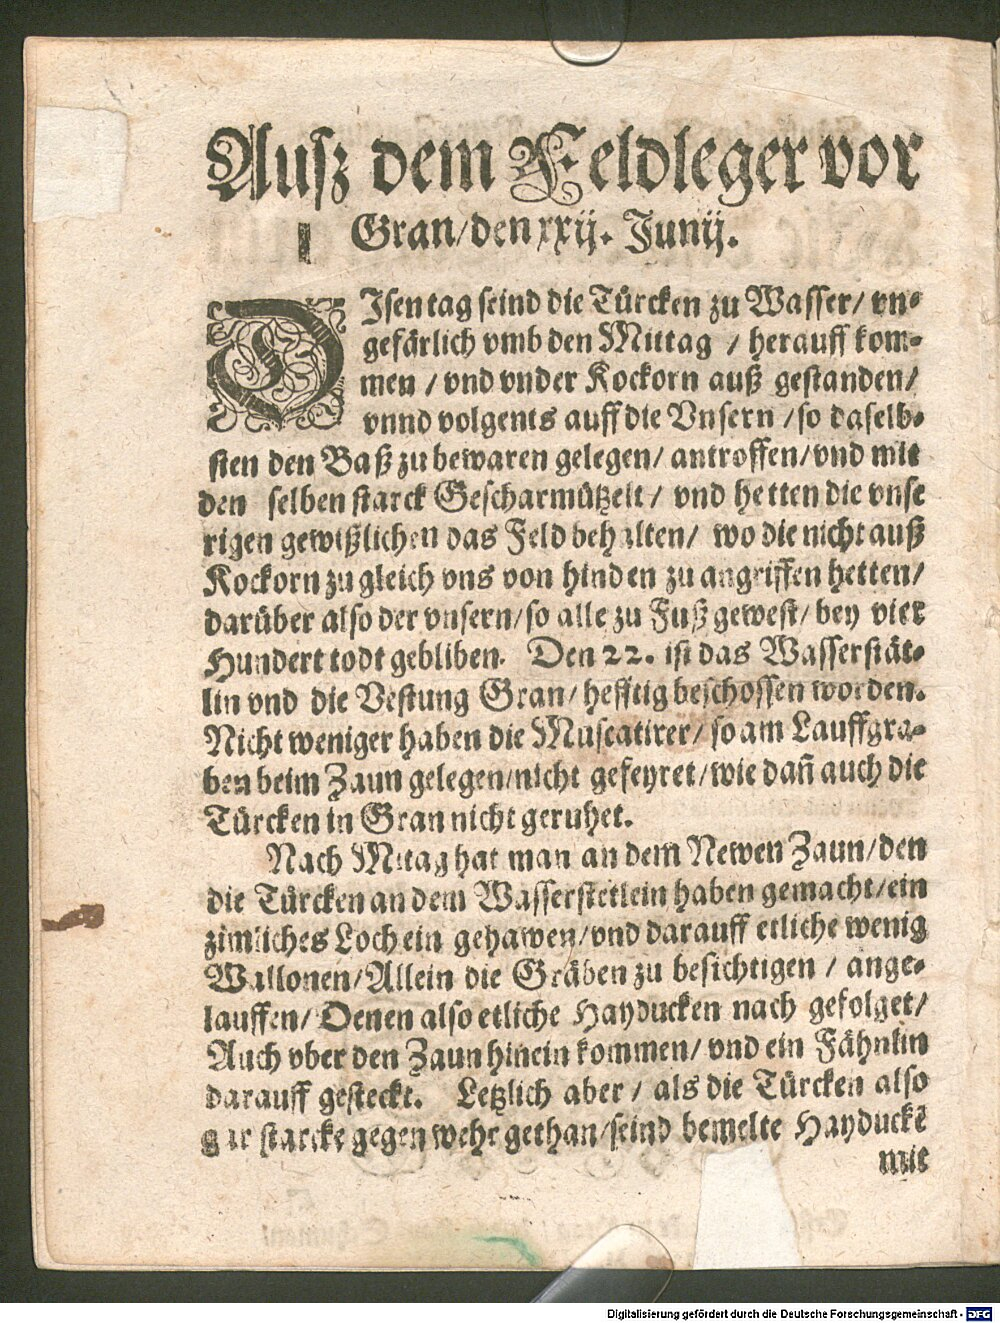 Ausz dem Feldleger vor
Gran/ den xxij. Junij.
DIsen tag seind die Türcken zu Wasser/ vn-
gefärlich vmb den Mittag / herauff kom-
men / vnd vnder Kockorn auß gestanden/
vnnd volgents auff die Vnsern / so daselb-
sten den Baß zu bewaren gelegen/ antroffen/ vnd mit
den selben starck Gescharmützelt / vnd hetten die vnse
rigen gewißlichen das Feld behalten/ wo die nicht auß
Kockorn zu gleich vns von hinden zu angriffen hetten/
darüber also der vnsern/ so alle zu Fuß gewest/ bey vier
Hundert todt gebliben. Den 22. ist das Wasserstät-
lin vnd die Vestung Gran/ hefftig beschossen worden.
Nicht weniger haben die Muscatirer/ so am Lauffgra-
ben beim Zaun gelegen/ nicht gefeyret/ wie dañ auch die
Türcken in Gran nicht geruhet.
Nach Mitag hat man an dem Newen Zaun/ den
die Türcken an dem Wasserstetlein haben gemacht/ ein
zimliches Loch ein gehawen/ vnd darauff etliche wenig
Wallonen/ Allein die Gräben zu besichtigen / ange-
lauffen/ Denen also etliche Hayducken nach gefolget/
Auch vber den Zaun hinein kommen/ vnd ein Fähnlin
darauff gesteckt. Letzlich aber / als die Türcken also
gar starcke gegen wehr gethan/ seind bemelte Hayduckē
mit
Digitalisierung gefördert durch die Deutsche Forschungsgemeinschaft - DFG